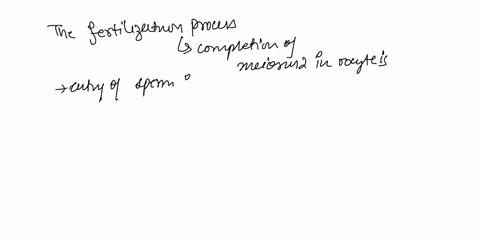 The fertilization process
↳ completion of
meiosis 2 in oocyte is
→ entry of sperm